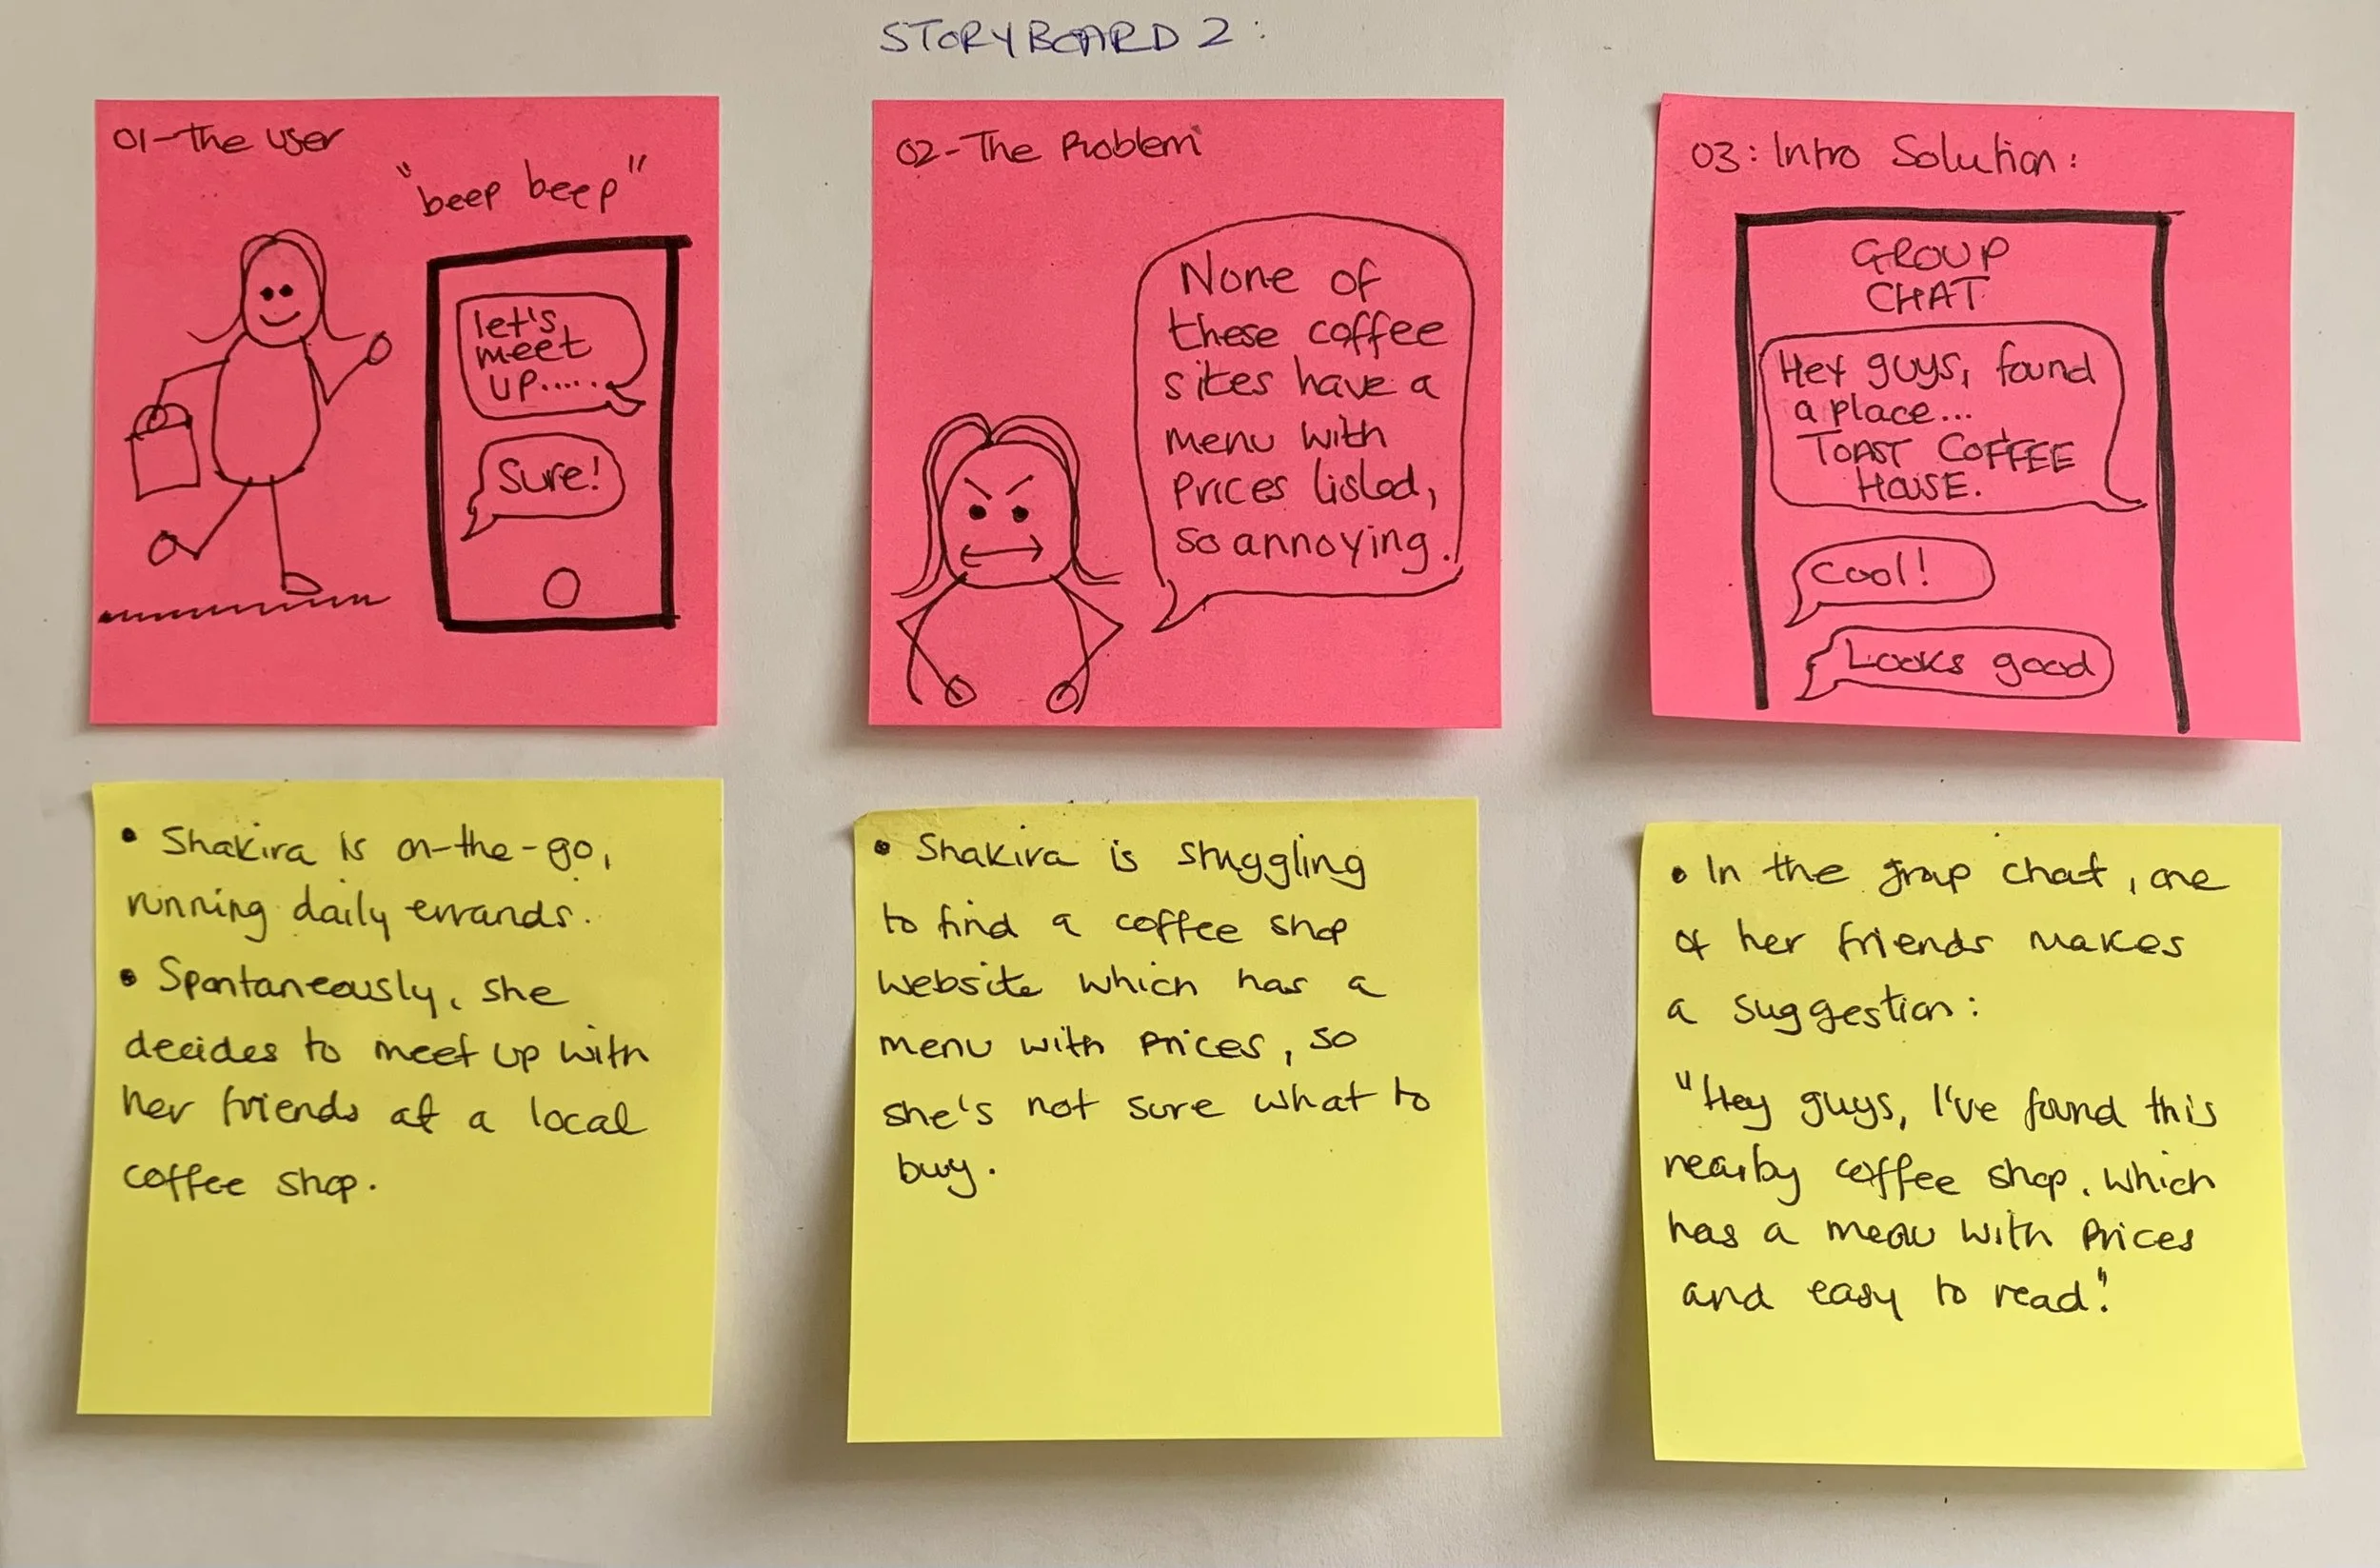 STORYBOARD 2:
01-The user
"beep beep"
let's
meet
up.....
Sure!
02-The Problem
None of
these coffee
sites have a
menu with
Prices listed,
so annoying.
03: Intro Solution:
GROUP
CHAT
Hey guys, found
a place...
TOAST COFFEE
HOUSE.
Cool!
Looks good
• Shakira is on-the-go,
running daily errands.
• Spontaneously, she
decides to meet up with
her friends at a local
coffee shop.
• Shakira is struggling
to find a coffee shop
website which has a
menu with prices, so
she's not sure what to
buy.
• In the group chat, one
of her friends makes
a suggestion:
"Hey guys, I've found this
nearby coffee shop, which
has a menu with Prices
and easy to read."